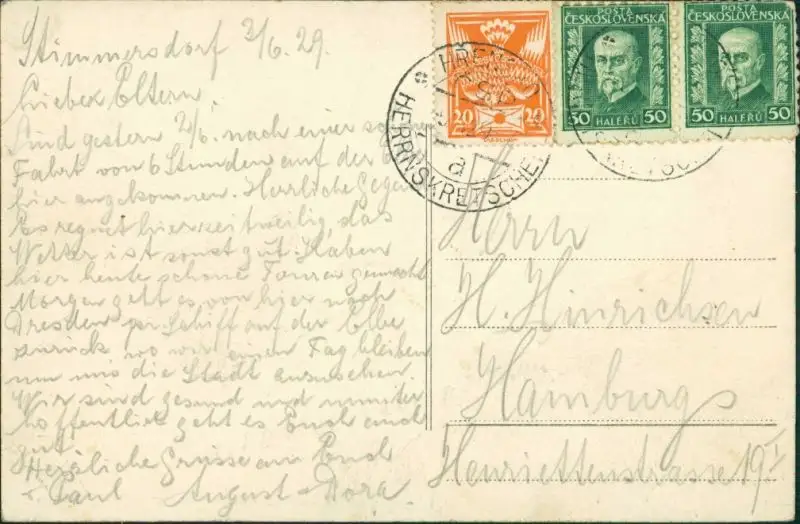 Stimmersdorf 3/6.29.
Lieber Eltern.
Sind gestern 2/6. nach einer
Fahrt von 6 Stunden auf der
hier angekommen. Herrliche Gegend
Es regnet hier zeitweilig, das
Wetter ist sonst gut. Haben
hier heute schöne Touren gemacht
Morgen geht es von hier nach
Dresden per Schiff auf der Elbe
zurück wo wir einen Tag bleiben
um uns die Stadt anzusehen.
Wir sind gesund und munter
hoffentlich geht es Euch auch
gut.
Herzliche Grüsse an Euch
Paul August Dora
20 20
POSTA
ČESKOSLOVENSKÁ
50 HALÉŘŮ 50
POSTA
ČESKOSLOVENSKÁ
50 HALÉŘŮ 50
HERRNSKRETSCHEN
a
Herrn
H. Hinrichsen
Hamburg 5
Henriettenstrasse 19 I